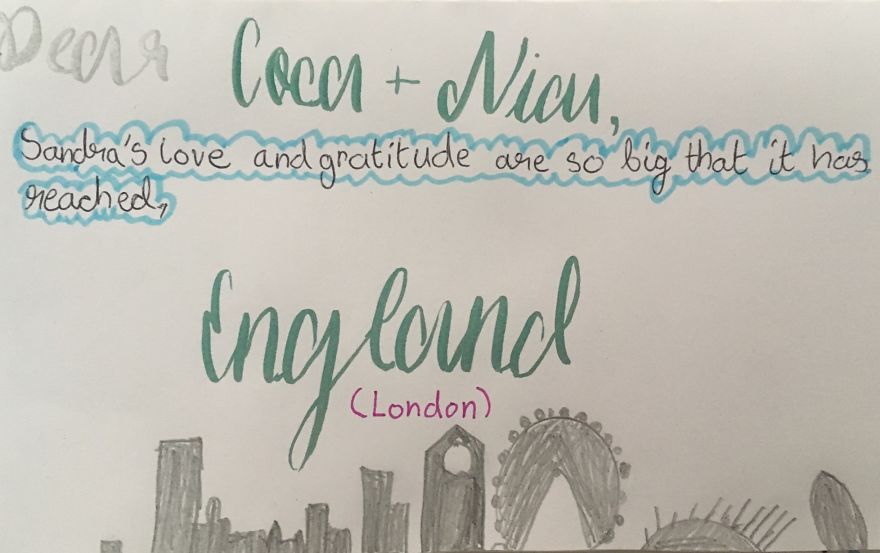 Dear Coca + Nicu,
Sandra's love and gratitude are so big that it has
reached,
England
(London)